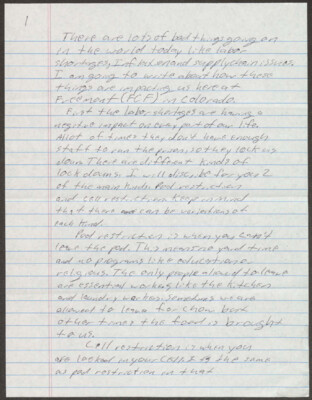 1
There are lots of bad things going on
in the world today like labor
shortages, Inflation and supply chain issues.
I am going to write about how these
things are impacting us here at
Fremont (FCF) in Colorado.
First the labor shortages are having a
negitive impact on every part of our life.
Alot of times they don't have enough
staff to run the prison, so they lock us
down. There are different kinds of
lockdowns. I will discribe for you 2
of the main kinds. Pod restriction
and cell restriction keep in mind
that there and can be variations of
each kind.
Pod restriction is when you can't
leave the pod. This means no yard time
and no programs like education or
religous. The only people alowed to leave
are essential workers like the kitchen
and laundry workers. Sometimes we are
alowed to leave for chow but
other times the food is brought
to us.
Cell restriction is when you
are locked in your cell. It is the same
as pod restriction in that